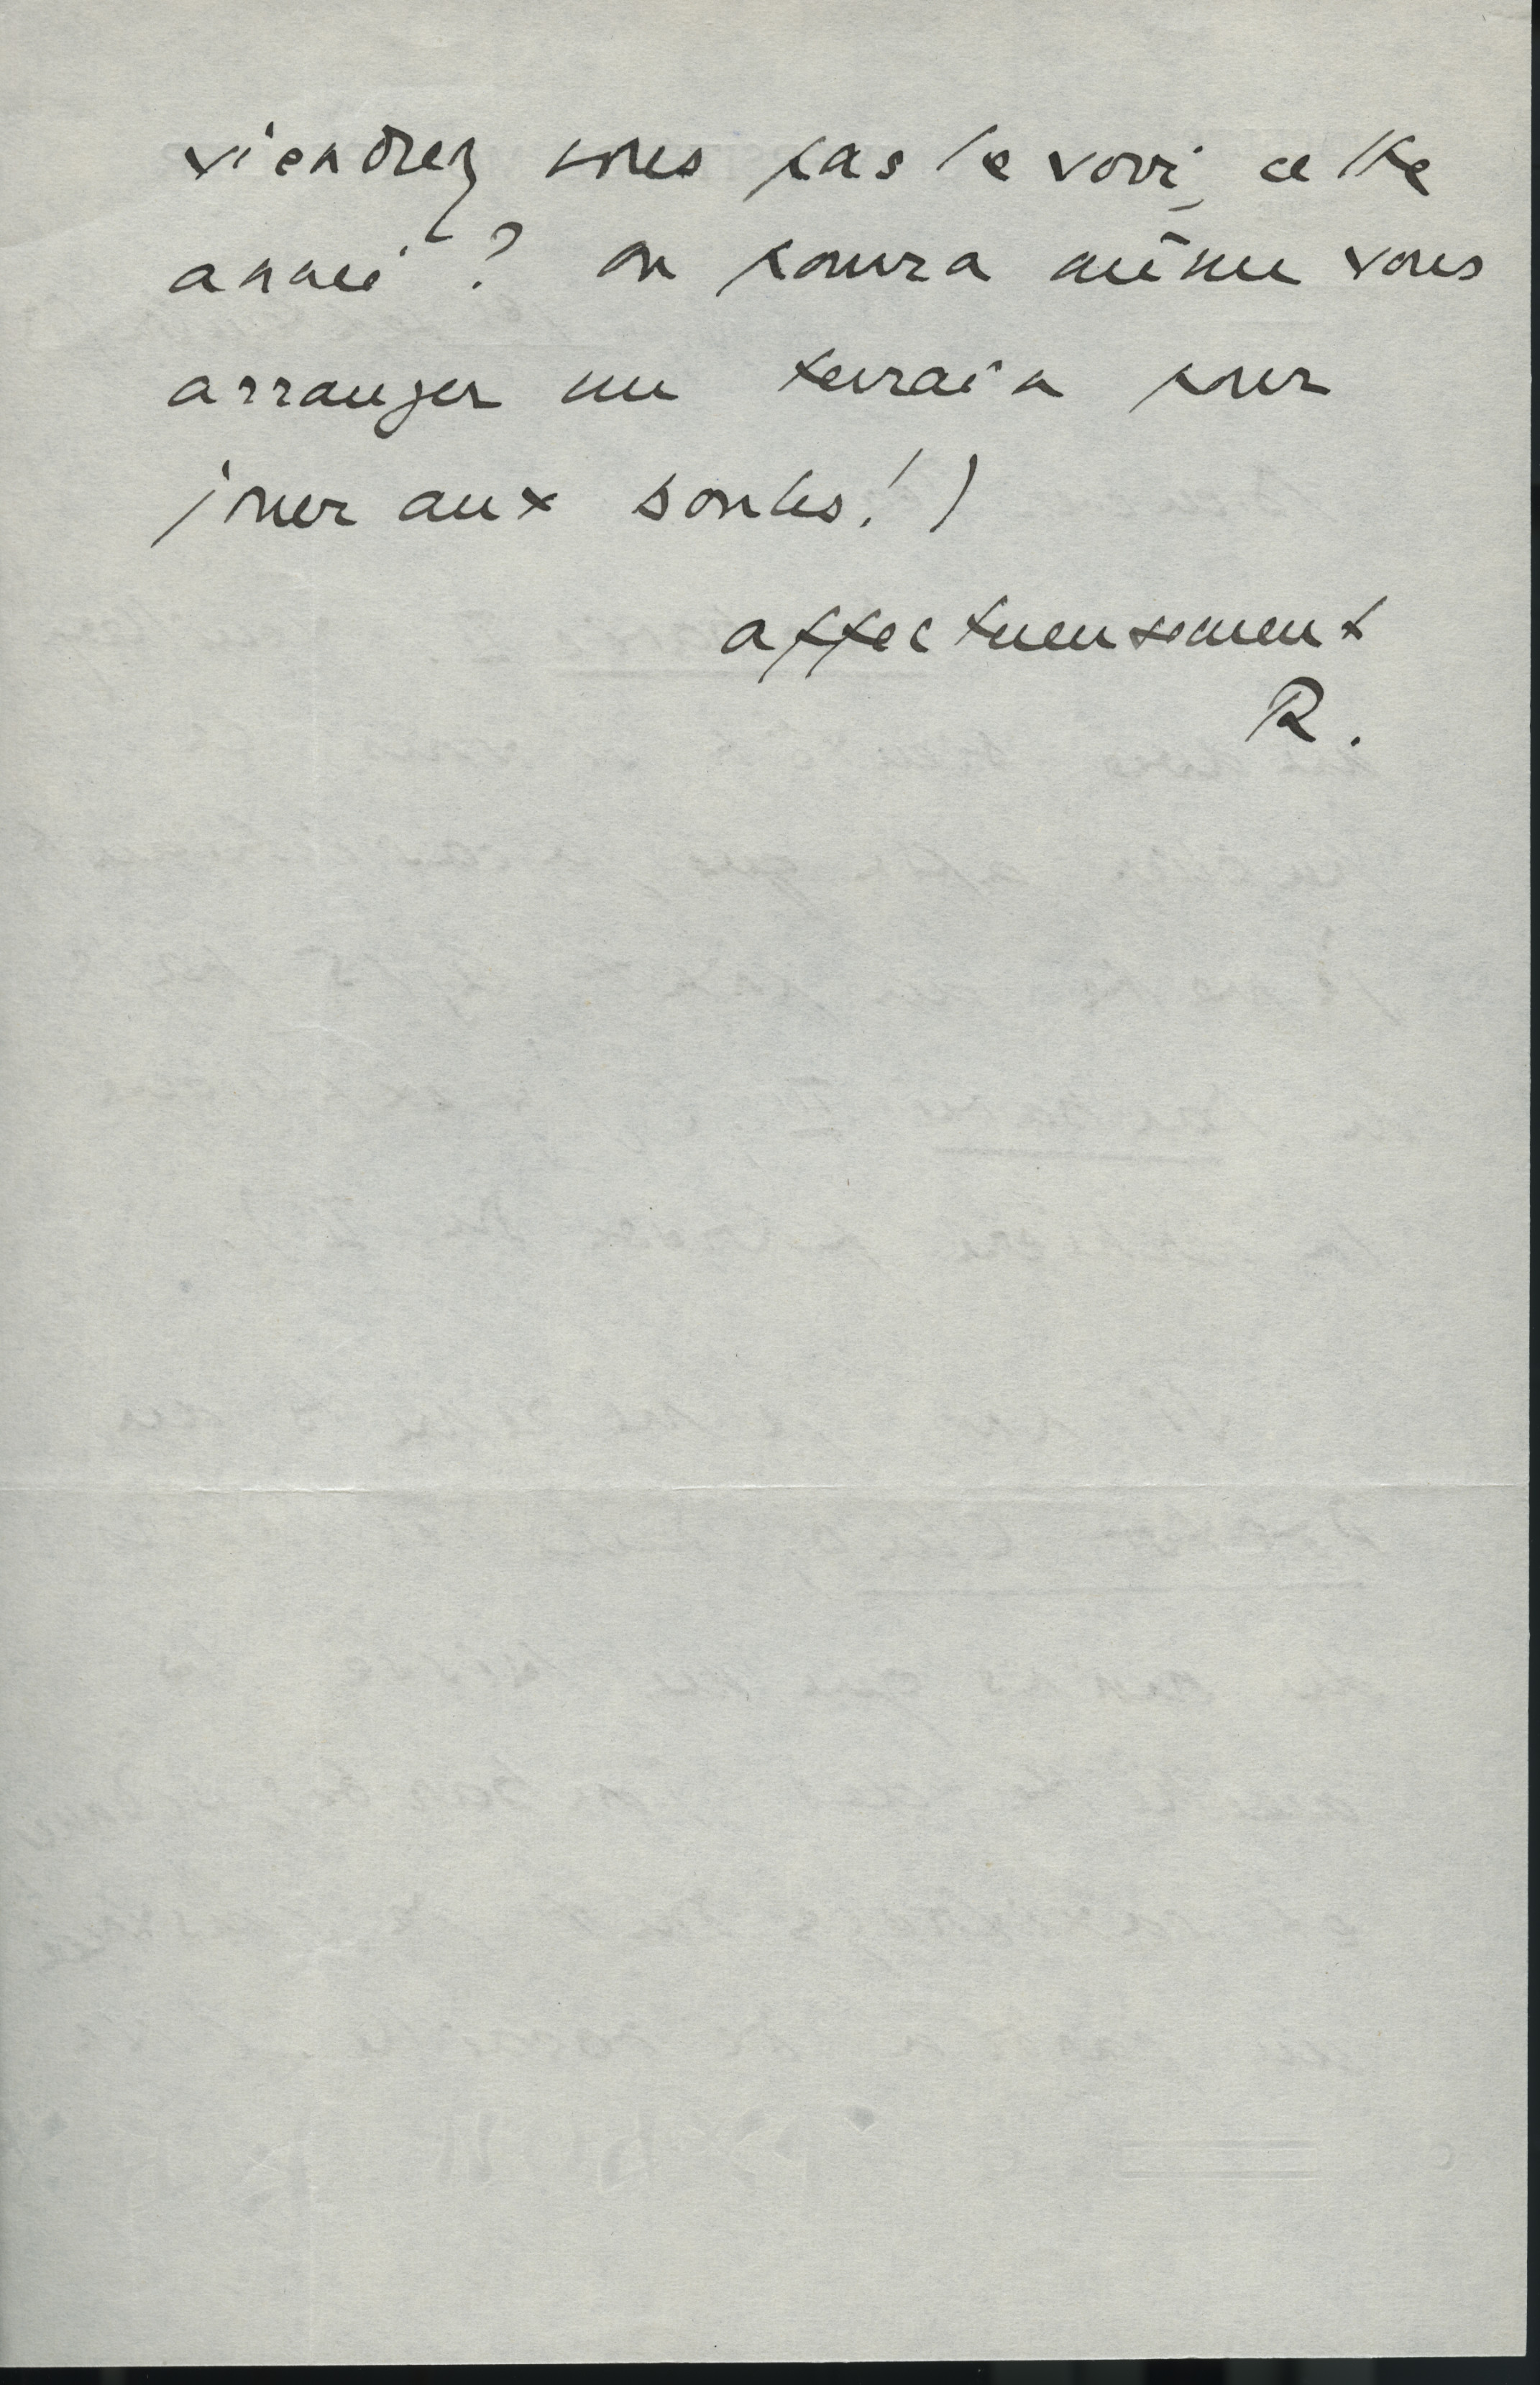 viendrez vous pas le voir cette
année ? On pourra même vous
arranger un terrain pour
jouer aux boules ! )
affectueusement
R.